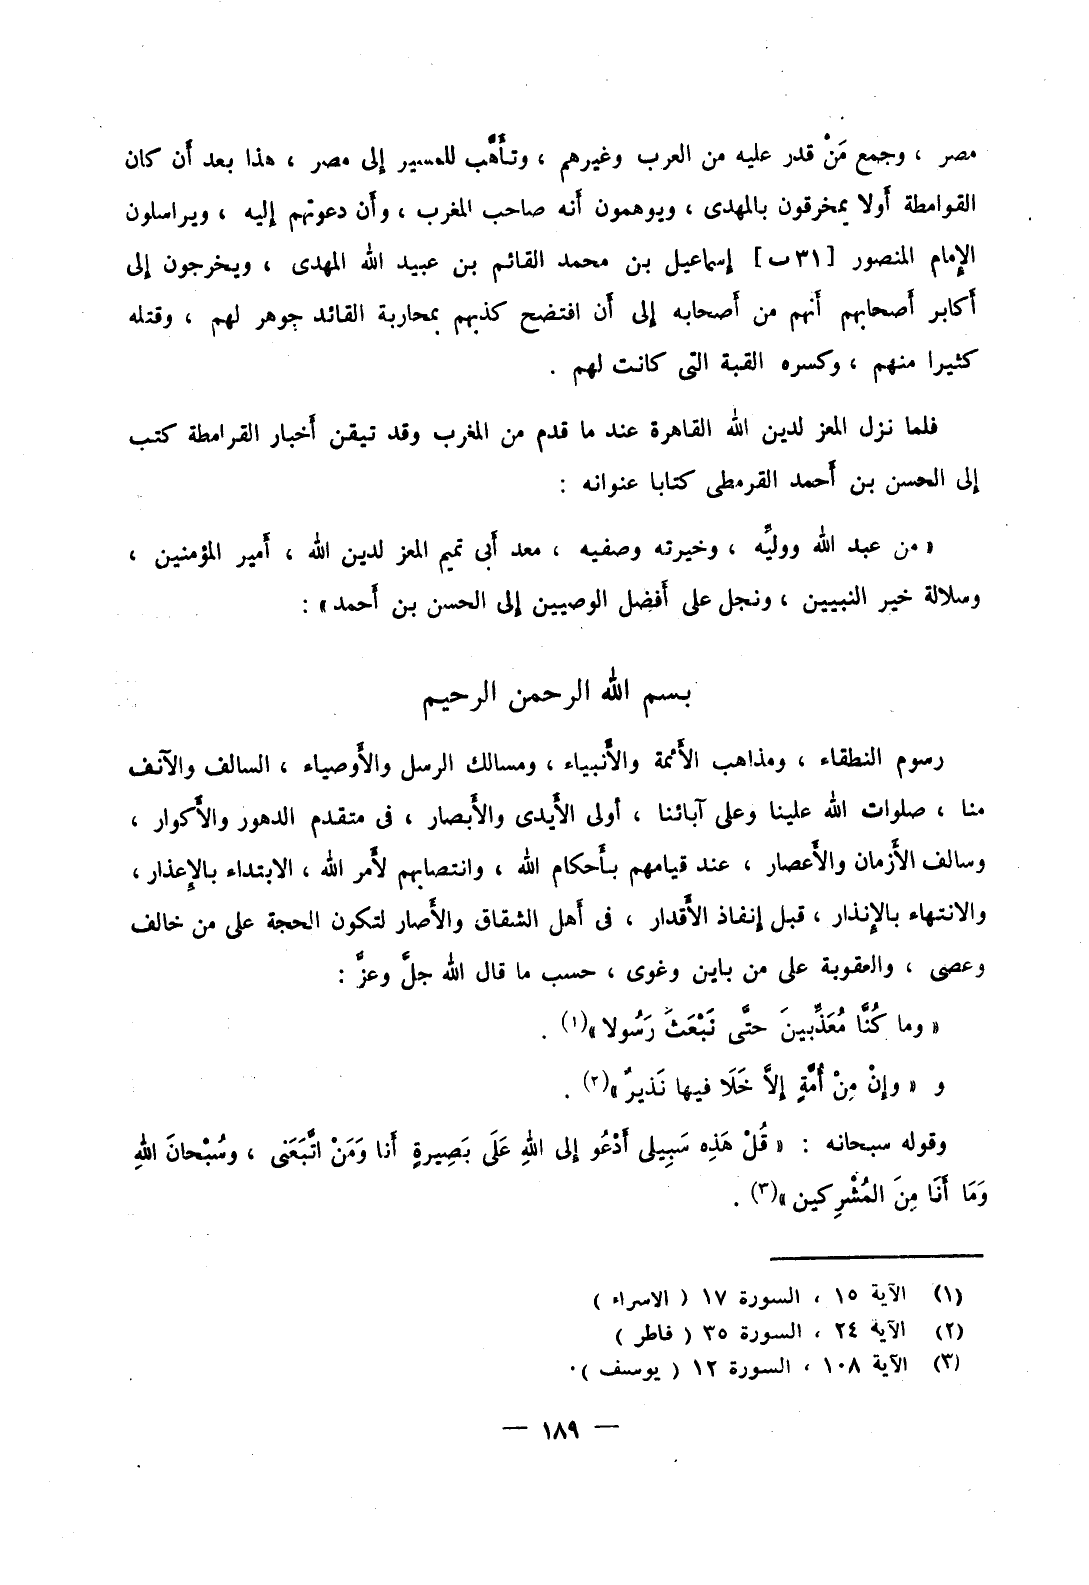 مصر ، وجمع مَنْ قدر عليه من العرب وغيرهم ، وتأَهَّب للمسير إلى مصر ، هذا بعد أَن كان
القوامطة أَولا يمخرقون بالمهدى ، ويوهمون أَنه صاحب المغرب ، وأَن دعوتهم إليه ، ويراسلون
الإِمام المنصور [ ٣١ ب ] إسماعيل بن محمد القائم بن عبيد الله المهدى ، ويخرجون إلى
أَكابر أَصحابهم أَنهم من أَصحابه إلى أَن افتضح كذبهم بمحاربة القائد جوهر لهم ، وقتله
كثيرا منهم ، وكسره القبة التى كانت لهم .
فلما نزل المعز لدين الله القاهرة عند ما قدم من المغرب وقد تيقن أَخبار القرامطة كتب
إلى الحسن بن أَحمد القرمطى كتابا عنوانه :
« من عبد الله ووليِّه ، وخيرته وصفيه ، معد أَبى تميم المعز لدين الله ، أَمير المؤمنين ،
وسلالة خير النبيين ، ونجل على أَفضل الوصيين إلى الحسن بن أَحمد » :
بسم الله الرحمن الرحيم
رسوم النطقاء ، ومذاهب الأَئمة والأَنبياء ، ومسالك الرسل والأَوصياء ، السالف والآنف
منا ، صلوات الله علينا وعلى آبائنا ، أولى الأَيدى والأَبصار ، فى متقدم الدهور والأَكوار ،
وسالف الأَزمان والأَعصار ، عند قيامهم بأَحكام الله ، وانتصابهم لأَمر الله ، الابتداء بالإِعذار ،
والانتهاء بالإِنذار ، قبل إنفاذ الأَقدار ، فى أَهل الشقاق والأَصار لتكون الحجة على من خالف
وعصى ، والعقوبة على من باين وغوى ، حسب ما قال الله جلَّ وعزَّ :
« وما كُنَّا مُعَذِّبينَ حتَّى نَبْعَثَ رَسُولا »(١) .
و « وإنْ مِنْ أُمَّةٍ إلاَّ خَلَا فيها نَذيرٌ »(٢) .
وقوله سبحانه : « قُلْ هَذِه سَبِيلى أَدْعُو إلى اللهِ عَلَى بَصِيرةٍ أَنا وَمَنْ اتَّبَعَنى ، وسُبْحانَ اللهِ
وَمَا أَنَا مِنَ المُشْرِكين »(٣) .
(١) الآية ١٥ ، السورة ١٧ ( الاسراء )
(٢) الآية ٢٤ ، السورة ٣٥ ( فاطر )
(٣) الآية ١٠٨ ، السورة ١٢ ( يوسف ) .
— ١٨٩ —